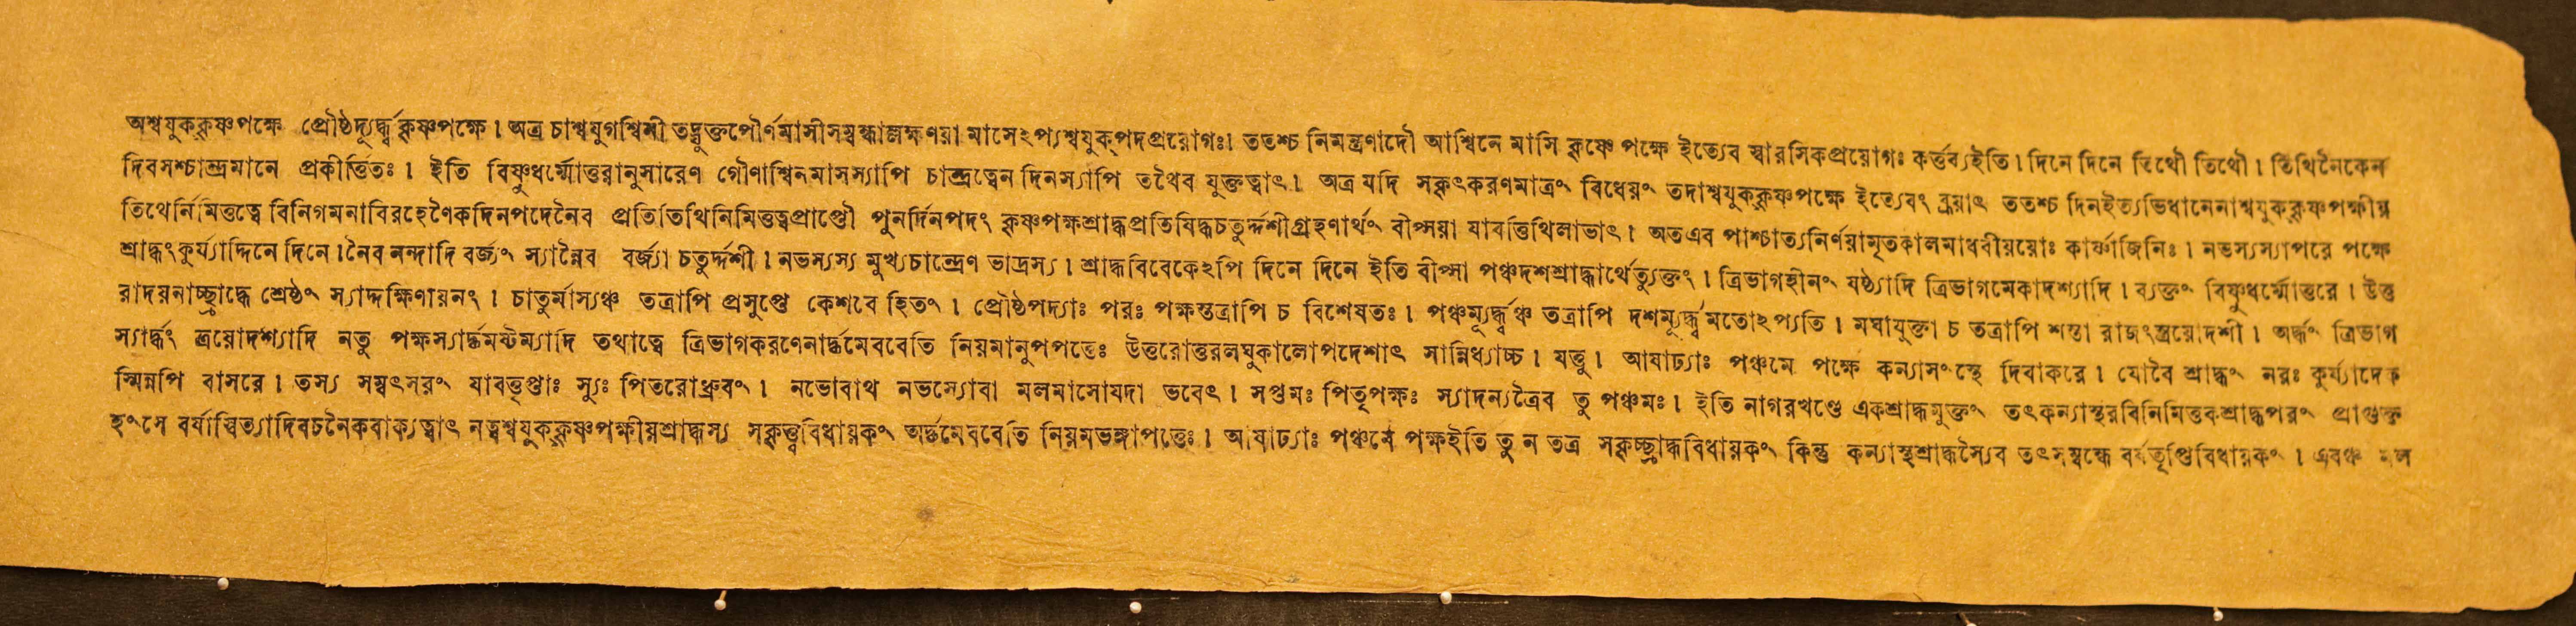 অশ্বযুককৃষ্ণপক্ষে প্রৌষ্ঠদ্যূর্দ্ধ্বকৃষ্ণপক্ষে। অত্র চাশ্বযুগশ্বিনী তদ্যুক্তপৌর্ণমাসীসম্বন্ধাল্লক্ষণয়া মাসেঽপ্যশ্বযুক্‌পদপ্রয়োগঃ। ততশ্চ নিমন্ত্রণাদৌ আশ্বিনে মাসি কৃষ্ণে পক্ষে ইত্যেব স্বারসিকপ্রয়োগঃ কর্ত্তব্যইতি। দিনে দিনে তিথৌ তিথৌ। তিথিনৈকেন
দিবসশ্চান্দ্রমানে প্রকীর্ত্তিতঃ। ইতি বিষ্ণুধর্ম্মোত্তরানুসারেণ গৌণাশ্বিনমাসস্যাপি চান্দ্রত্বেন দিনস্যাপি তথৈব যুক্তত্বাৎ। অত্র যদি সকৃৎকরণমাত্রং বিধেয়ং তদাশ্বযুককৃষ্ণপক্ষে ইত্যেবং ব্রূয়াৎ ততশ্চ দিনইত্যভিধানেনাশ্বযুককৃষ্ণপক্ষীয়
তিথের্নিমিত্তত্বে বিনিগমনাবিরহেণৈকদিনপদেনৈব প্রতিতিথিনিমিত্তত্বপ্রাপ্তৌ পুনর্দিনপদং কৃষ্ণপক্ষশ্রাদ্ধপ্রতিষিদ্ধচতুর্দ্দশীগ্রহণার্থং বীপ্সয়া যাবত্তিথিলাভাৎ। অতএব পাশ্চাত্যনির্ণয়ামৃতকালমাধবীয়য়োঃ কার্ষ্ণাজিনিঃ। নভস্যস্যাপরে পক্ষে
শ্রাদ্ধংকুর্য্যাদ্দিনে দিনে। নৈব নন্দাদি বর্জ্জ্যং স্যান্নৈব বর্জ্জ্যা চতুর্দ্দশী। নভস্যস্য মুখ্যচান্দ্রেণ ভাদ্রস্য। শ্রাদ্ধবিবেকেঽপি দিনে দিনে ইতি বীপ্সা পঞ্চদশশ্রাদ্ধার্থেত্যুক্তং। ত্রিভাগহীনং ষষ্ঠ্যাদি ত্রিভাগমেকাদশ্যাদি। ব্যক্তং বিষ্ণুধর্ম্মোত্তরে। উত্ত
রাদয়নাচ্ছ্রাদ্ধে শ্রেষ্ঠং স্যাদ্দক্ষিণায়নং। চাতুর্মাস্যঞ্চ তত্রাপি প্রসুপ্তে কেশবে হিতং। প্রৌষ্ঠপদ্যাঃ পরঃ পক্ষস্তত্রাপি চ বিশেষতঃ। পঞ্চম্যূর্দ্ধ্বঞ্চ তত্রাপি দশম্যূর্দ্ধ্বমতোঽপ্যতি। মঘাযুক্তা চ তত্রাপি শস্তা রাজংস্ত্রয়োদশী। অর্দ্ধং ত্রিভাগ
স্যার্দ্ধং ত্রয়োদশ্যাদি নতু পক্ষস্যার্দ্ধমষ্টম্যাদি তথাত্বে ত্রিভাগকরণেনার্দ্ধমেববেতি নিয়মানুপপত্তেঃ উত্তরোত্তরলঘুকালোপদেশাৎ সান্নিধ্যাচ্চ। যত্তু। আষাঢ্যাঃ পঞ্চমে পক্ষে কন্যাসংস্থে দিবাকরে। যোবৈ শ্রাদ্ধং নরঃ কুর্য্যাদেক
স্মিন্নপি বাসরে। তস্য সম্বৎসরং যাবত্তৃপ্তাঃ স্যুঃ পিতরোধ্রুবং। নভোবাথ নভস্যোবা মলমাসোযদা ভবেৎ। সপ্তমঃ পিতৃপক্ষঃ স্যাদন্যত্রৈব তু পঞ্চমঃ। ইতি নাগরখণ্ডে একশ্রাদ্ধমুক্তং তৎকন্যাস্থরবিনিমিত্তকশ্রাদ্ধপরং প্রাগুক্ত
হংসে বর্ষাস্বিত্যাদিবচনৈকবাক্যত্বাৎ নত্বশ্বযুককৃষ্ণপক্ষীয়শ্রাদ্ধস্য সকৃত্ত্ববিধায়কং অর্দ্ধমেববেতি নিয়মভঙ্গাপত্তেঃ। আষাঢ্যাঃ পঞ্চমে পক্ষইতি তু ন তত্র সকৃচ্ছ্রাদ্ধবিধায়কং কিন্তু কন্যাস্থশ্রাদ্ধস্যৈব তৎসম্বন্ধে বর্ষতৃপ্তিবিধায়কং। এবঞ্চ মল